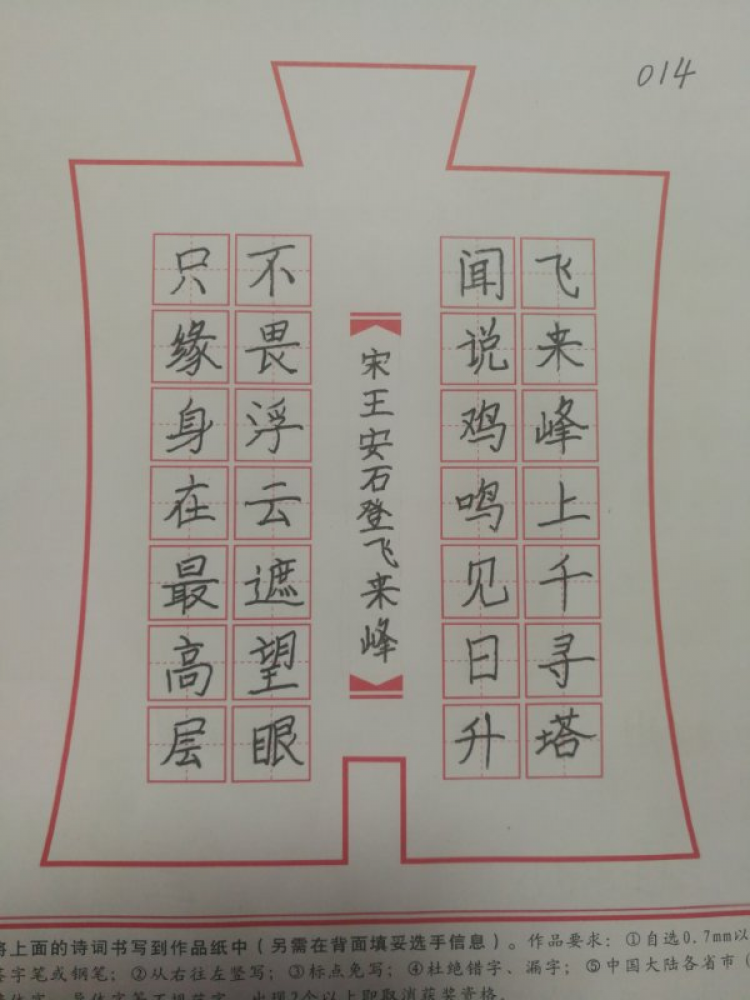 014
飞来峰上千寻塔
闻说鸡鸣见日升
宋王安石登飞来峰
不畏浮云遮望眼
只缘身在最高层
将上面的诗词书写到作品纸中(另需在背面填妥选手信息)。作品要求:①自选0.7mm以
签字笔或钢笔;②从右往左竖写;③标点免写;④杜绝错字、漏字;⑤中国大陆各省市(